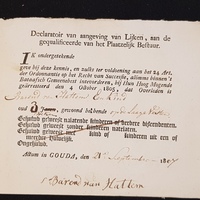 Declaratoir van aangeving van Lijken, aan de
gequalificeerde van het Plaatzelijk Bestuur.
IK ondergetekende
geve bij deze kennis, en zulks ter voldoening aan het 24. Art.
der Ordonnantie op het Recht van Successie, alomme binnen 't
Bataafsch Gemeenebest geïntroduceerd, bij Hun Hoog Mogende
gearresteerd den 4 October 1805, dat Overleden is
oud Jaren, gewoond hebbende
Gehuwd geweest nalatende kinderen of verdere descendenten.
Gehuwd geweest zonder kinderen natelaten.
Gehuwd geweest met kind of kinderen uit een of
meerdere Huwelijken.
Ongehuwd.
Actum in GOUDA, den September 1807
Barend van Hattem